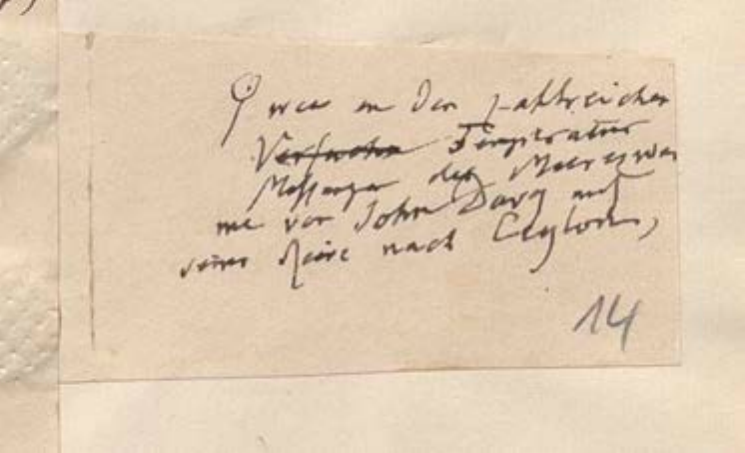 wie in den zahlreichen
Versuchen Temperatur
Messungen der Meereswär
me von John Davy auf
seiner Reise nach Ceylon,
14